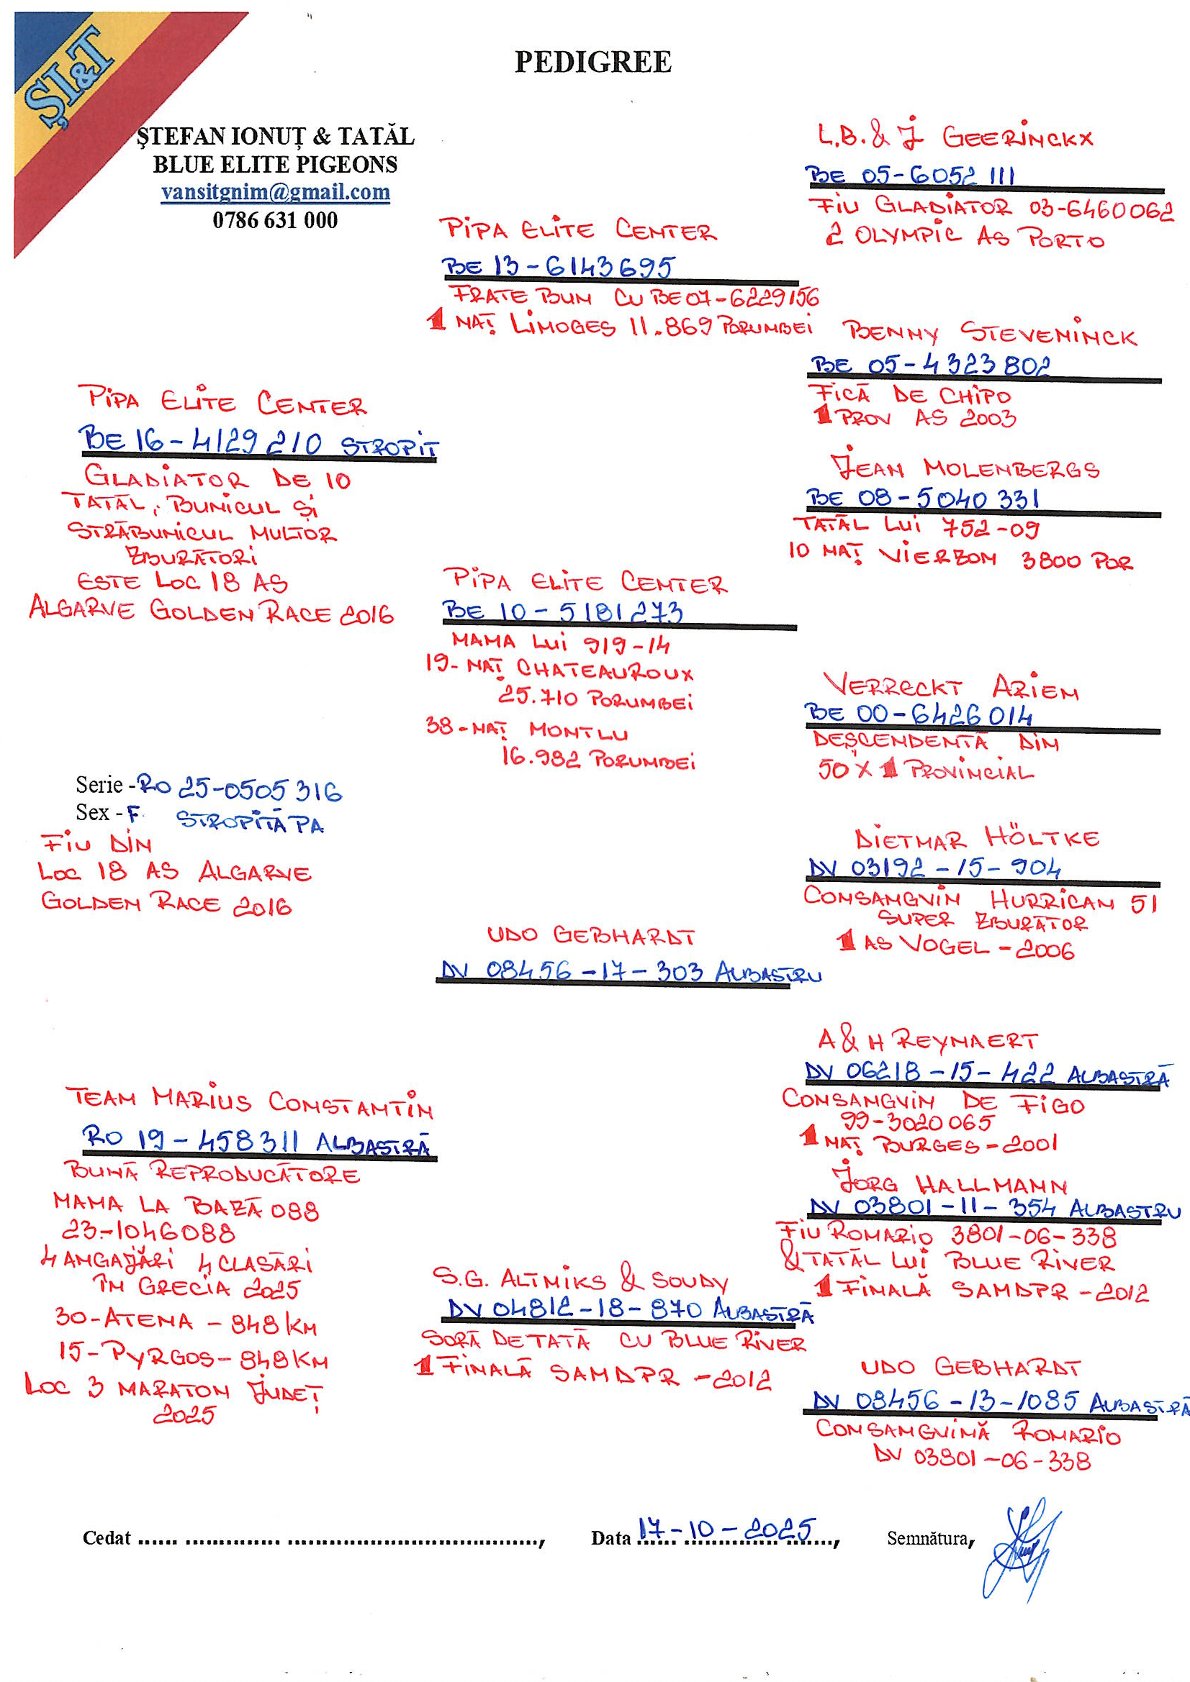 ŞI&T
PEDIGREE
ŞTEFAN IONUŢ & TATĂL
BLUE ELITE PIGEONS
vansitgnim@gmail.com
0786 631 000
L.B. & J GEERINCKX
BE 05-6052111
FIU GLADIATOR 03-6460062
2 OLYMPIC AS PORTO
PIPA ELITE CENTER
BE 13-6143695
FRATE BUN CU BE07-6229156
1 NAȚ LIMOGES 11.869 PORUMBEI
BENNY STEVENINCK
BE 05-4323802
FICĂ DE CHIPO
1 PROV AS 2003
PIPA ELITE CENTER
BE 16-4129210 STROPIT
GLADIATOR DE 10
TATĂL, BUNICUL ȘI
STRĂBUNICUL MULTOR
ZBURĂTORI
ESTE LOC 18 AS
ALGARVE GOLDEN RACE 2016
JEAN MOLENBERGS
BE 08-5040331
TATĂL LUI 752-09
10 NAȚ VIERZON 3800 POR
PIPA ELITE CENTER
BE 10-5181273
MAMA LUI 919-14
19-NAȚ CHATEAUROUX
25.710 PORUMBEI
38-NAȚ MONTLU
16.982 PORUMBEI
VERRECKT ARIEN
BE 00-6426014
DESCENDENTĂ DIN
50X1 PROVINCIAL
Serie - RO 25-0505316
Sex - F STROPITĂ PA
FIU DIN
LOC 18 AS ALGARVE
GOLDEN RACE 2016
DIETMAR HÖLTKE
DV 03192-15-904
CONSANGVIN HURRICAN 51
SUPER ZBURĂTOR
1 AS VOGEL-2006
UDO GEBHARDT
DV 08456-17-303 ALBASTRU
A & H REYNAERT
DV 06218-15-422 ALBASTRĂ
CONSANGVIN DE FIGO
99-3020065
1 NAȚ BURGES-2001
TEAM MARIUS CONSTANTIN
RO 19-458311 ALBASTRĂ
BUNĂ REPRODUCĂTORE
MAMA LA BAZĂ 088
23-1046088
4 ANGAJĂRI 4 CLASĂRI
ÎN GRECIA 2025
30-ATENA - 848 KM
15-PYRGOS-848KM
LOC 3 MARATON JUDEȚ
2025
JORG HALLMANN
DV 03801-11-354 ALBASTRU
FIU ROMARIO 3801-06-338
& TATĂL LUI BLUE RIVER
1 FINALĂ SAMDPR-2012
S.G. ALTNIKS & SOUDY
DV 04812-18-870 ALBASTRĂ
SORĂ DE TATĂ CU BLUE RIVER
1 FINALĂ SAMDPR-2012
UDO GEBHARDT
DV 08456-13-1085 ALBASTRĂ
CONSANGVINĂ ROMARIO
DV 03801-06-338
Cedat ...... .............. ....................................., Data 17-10-2025, Semnătura,